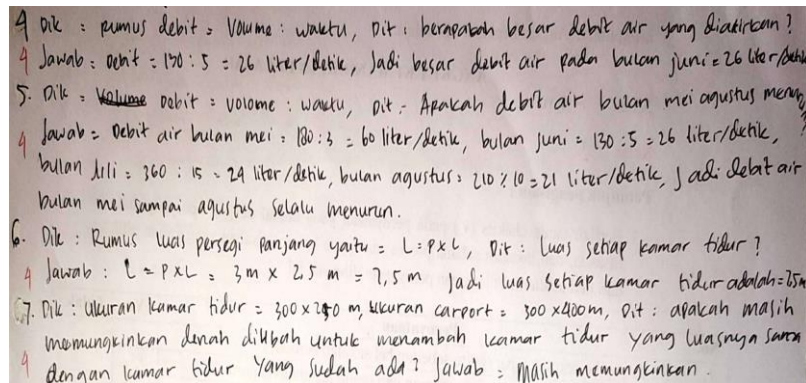 4 Dik : Rumus debit = Volume : waktu, Dit : berapakah besar debit air yang dialirkan?
4 Jawab : Debit = 130 : 5 = 26 liter/detik, Jadi besar debit air pada bulan juni = 26 liter/detik
5. Dik = Volume Debit = volome : waktu, Dit : Apakah debit air bulan mei agustus menurun?
4 Jawab = Debit air bulan mei = 180 : 3 = 60 liter/detik, bulan juni = 130 : 5 = 26 liter/detik,
bulan Juli = 360 : 15 = 24 liter/detik, bulan agustus = 210 % 10 = 21 liter/detik, Jadi debit air
bulan mei sampai agustus selalu menurun.
6. Dik : Rumus luas persegi panjang yaitu = L = P x L, Dit : Luas setiap kamar tidur?
4 Jawab : L = P x L = 3 m x 2,5 m = 7,5 m Jadi luas setiap kamar tidur adalah = 7,5 m
7. Dik : Ukuran kamar tidur = 300 x 250 m, ukuran carport = 300 x 400 m, Dit : apakah masih
memungkinkan denah diubah untuk menambah kamar tidur yang luasnya sama
4 dengan kamar tidur yang sudah ada? Jawab = Masih memungkinkan.